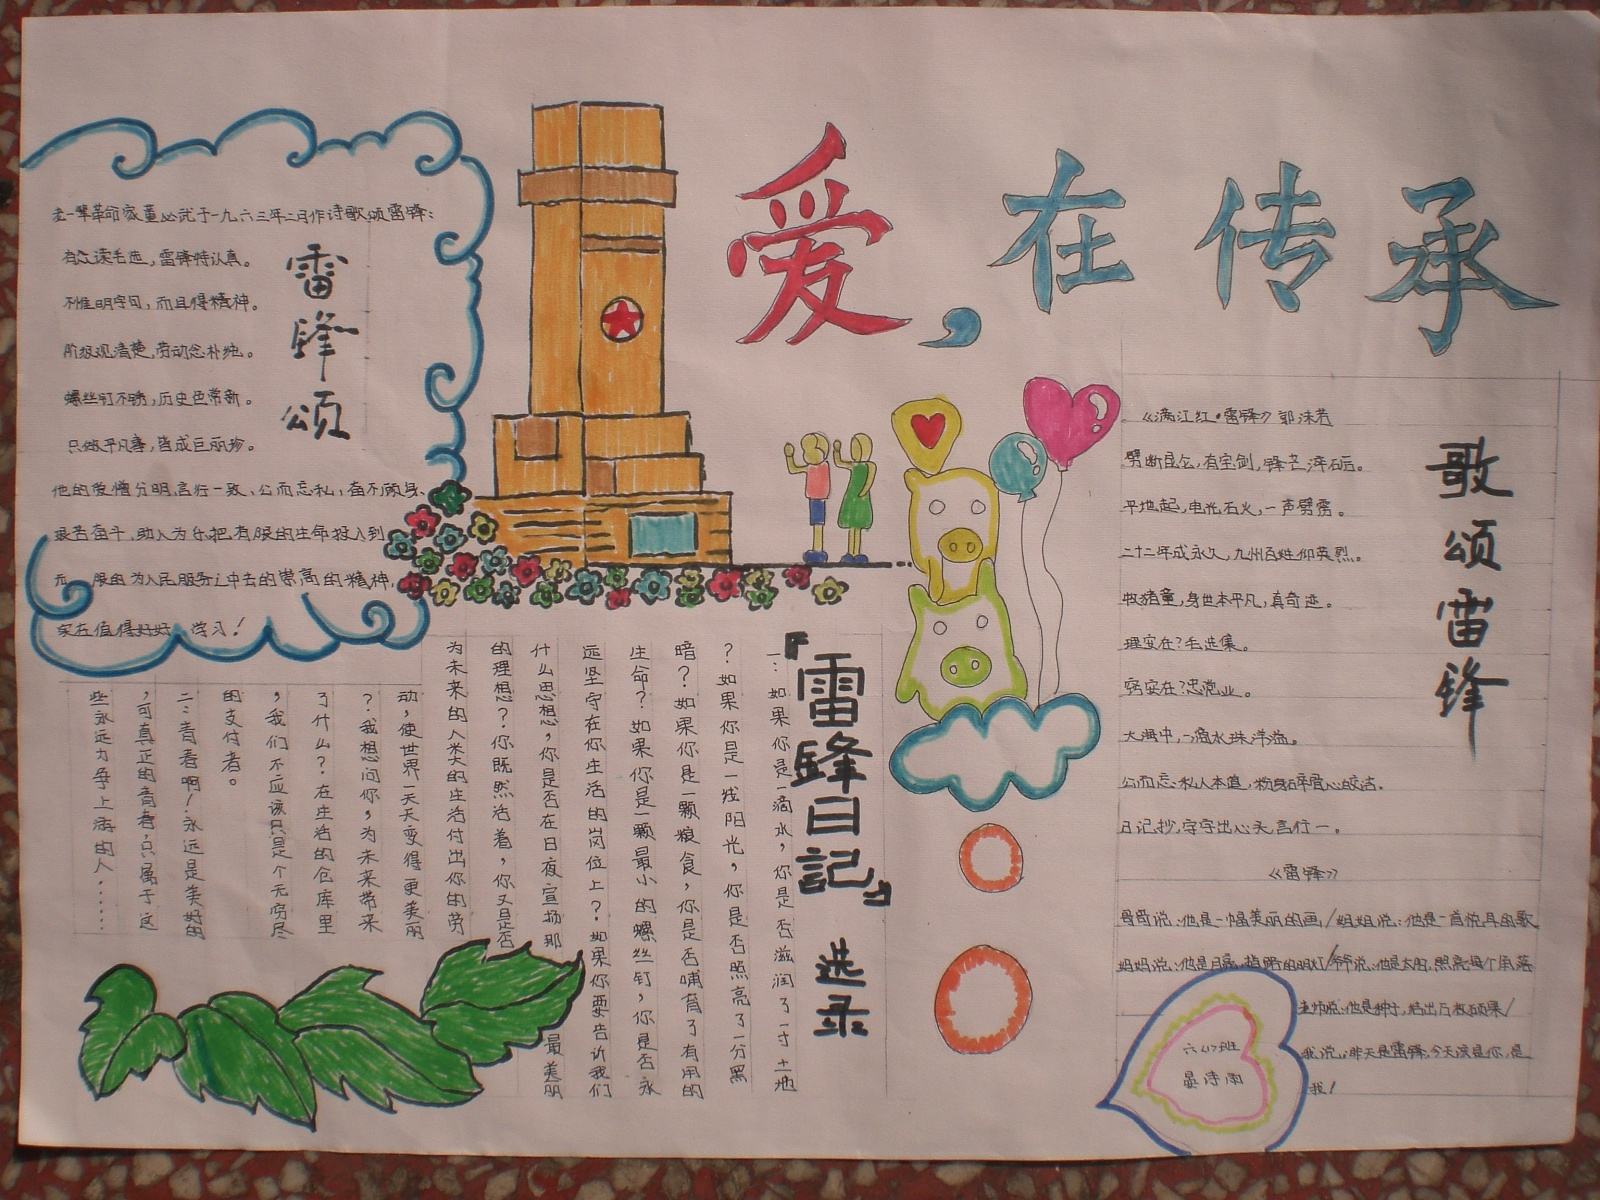 爱,在传承
老一辈革命家董必武于一九六三年二月作诗歌颂雷锋:
雷锋颂
有众读毛选,雷锋特认真。
不惟明字句,而且得精神。
阶级观清楚,劳动念朴纯。
螺丝钉不锈,历史色常新。
只做平凡事,皆成巨丽珍。
他的爱憎分明,言行一致,公而忘私,奋不顾身,
艰苦奋斗,助人为乐,把有限的生命投入到
无 限的为人民服务之中去的崇高的精神,
实在值得好好 学习!
『雷锋日記』 选录
一:如果你是一滴水,你是否滋润了一寸土地
?如果你是一线阳光,你是否照亮了一分黑
暗?如果你是一颗粮食,你是否哺育了有用的
生命?如果你是一颗最小的螺丝钉,你是否永
远坚守在你生活的岗位上?如果你要告诉我们
什么思想,你是否在日夜宣扬那 最美丽
的理想?你既然活着,你又是否
为未来的人类的生活付出你的劳
动,使世界一天天变得更美丽
?我想问你,为未来带来
了什么?在生活的仓库里
,我们不应该只是个无穷尽
的支付者。
二:青春啊!永远是美好的
,可真正的青春,只属于这
些永远力争上游的人……
歌颂雷锋
《满江红·雷锋》郭沫若
劈断昆仑,有宝剑,锋芒淬砺。
平地起,电光石火,一声劈雳。
二十二年成永久,九州百姓仰英烈。
牧猪童,身世本平凡,真奇迹。
理实在?毛选集。
穷实在?忠党业。
大海中,一滴水珠洋溢。
公而忘私人本道,粉身碎骨心皎洁。
日记抄,字字出心头,言行一。
《雷锋》
哥哥说:他是一幅美丽的画/姐姐说:他是一首悦耳的歌
妈妈说:他是月亮,指路的明灯/爷爷说:他是太阳,照亮每个角落
老师说:他是种子,结出万枚硕果/
我说:昨天是雷锋,今天该是你,是
我!
六(4)班
晏诗雨